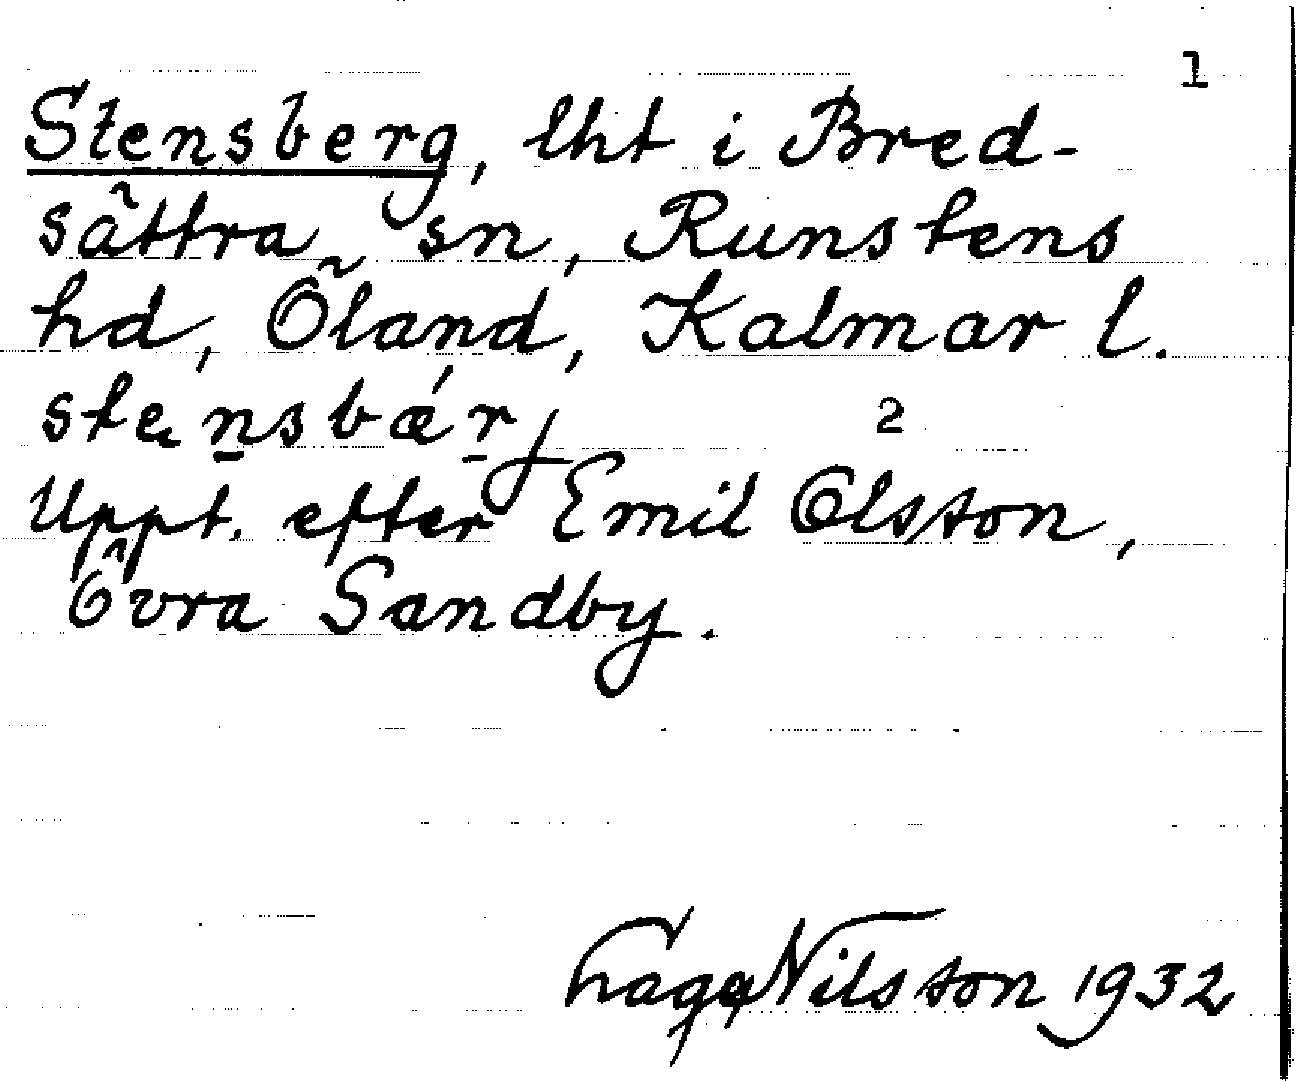 1
Stensberg, lht i Bred-
sättra sn, Runstens
hd, Öland, Kalmar l.
stensbǽrj 2
Uppt. efter Emil Olsson,
Övra Sandby.
Nilsson 1932